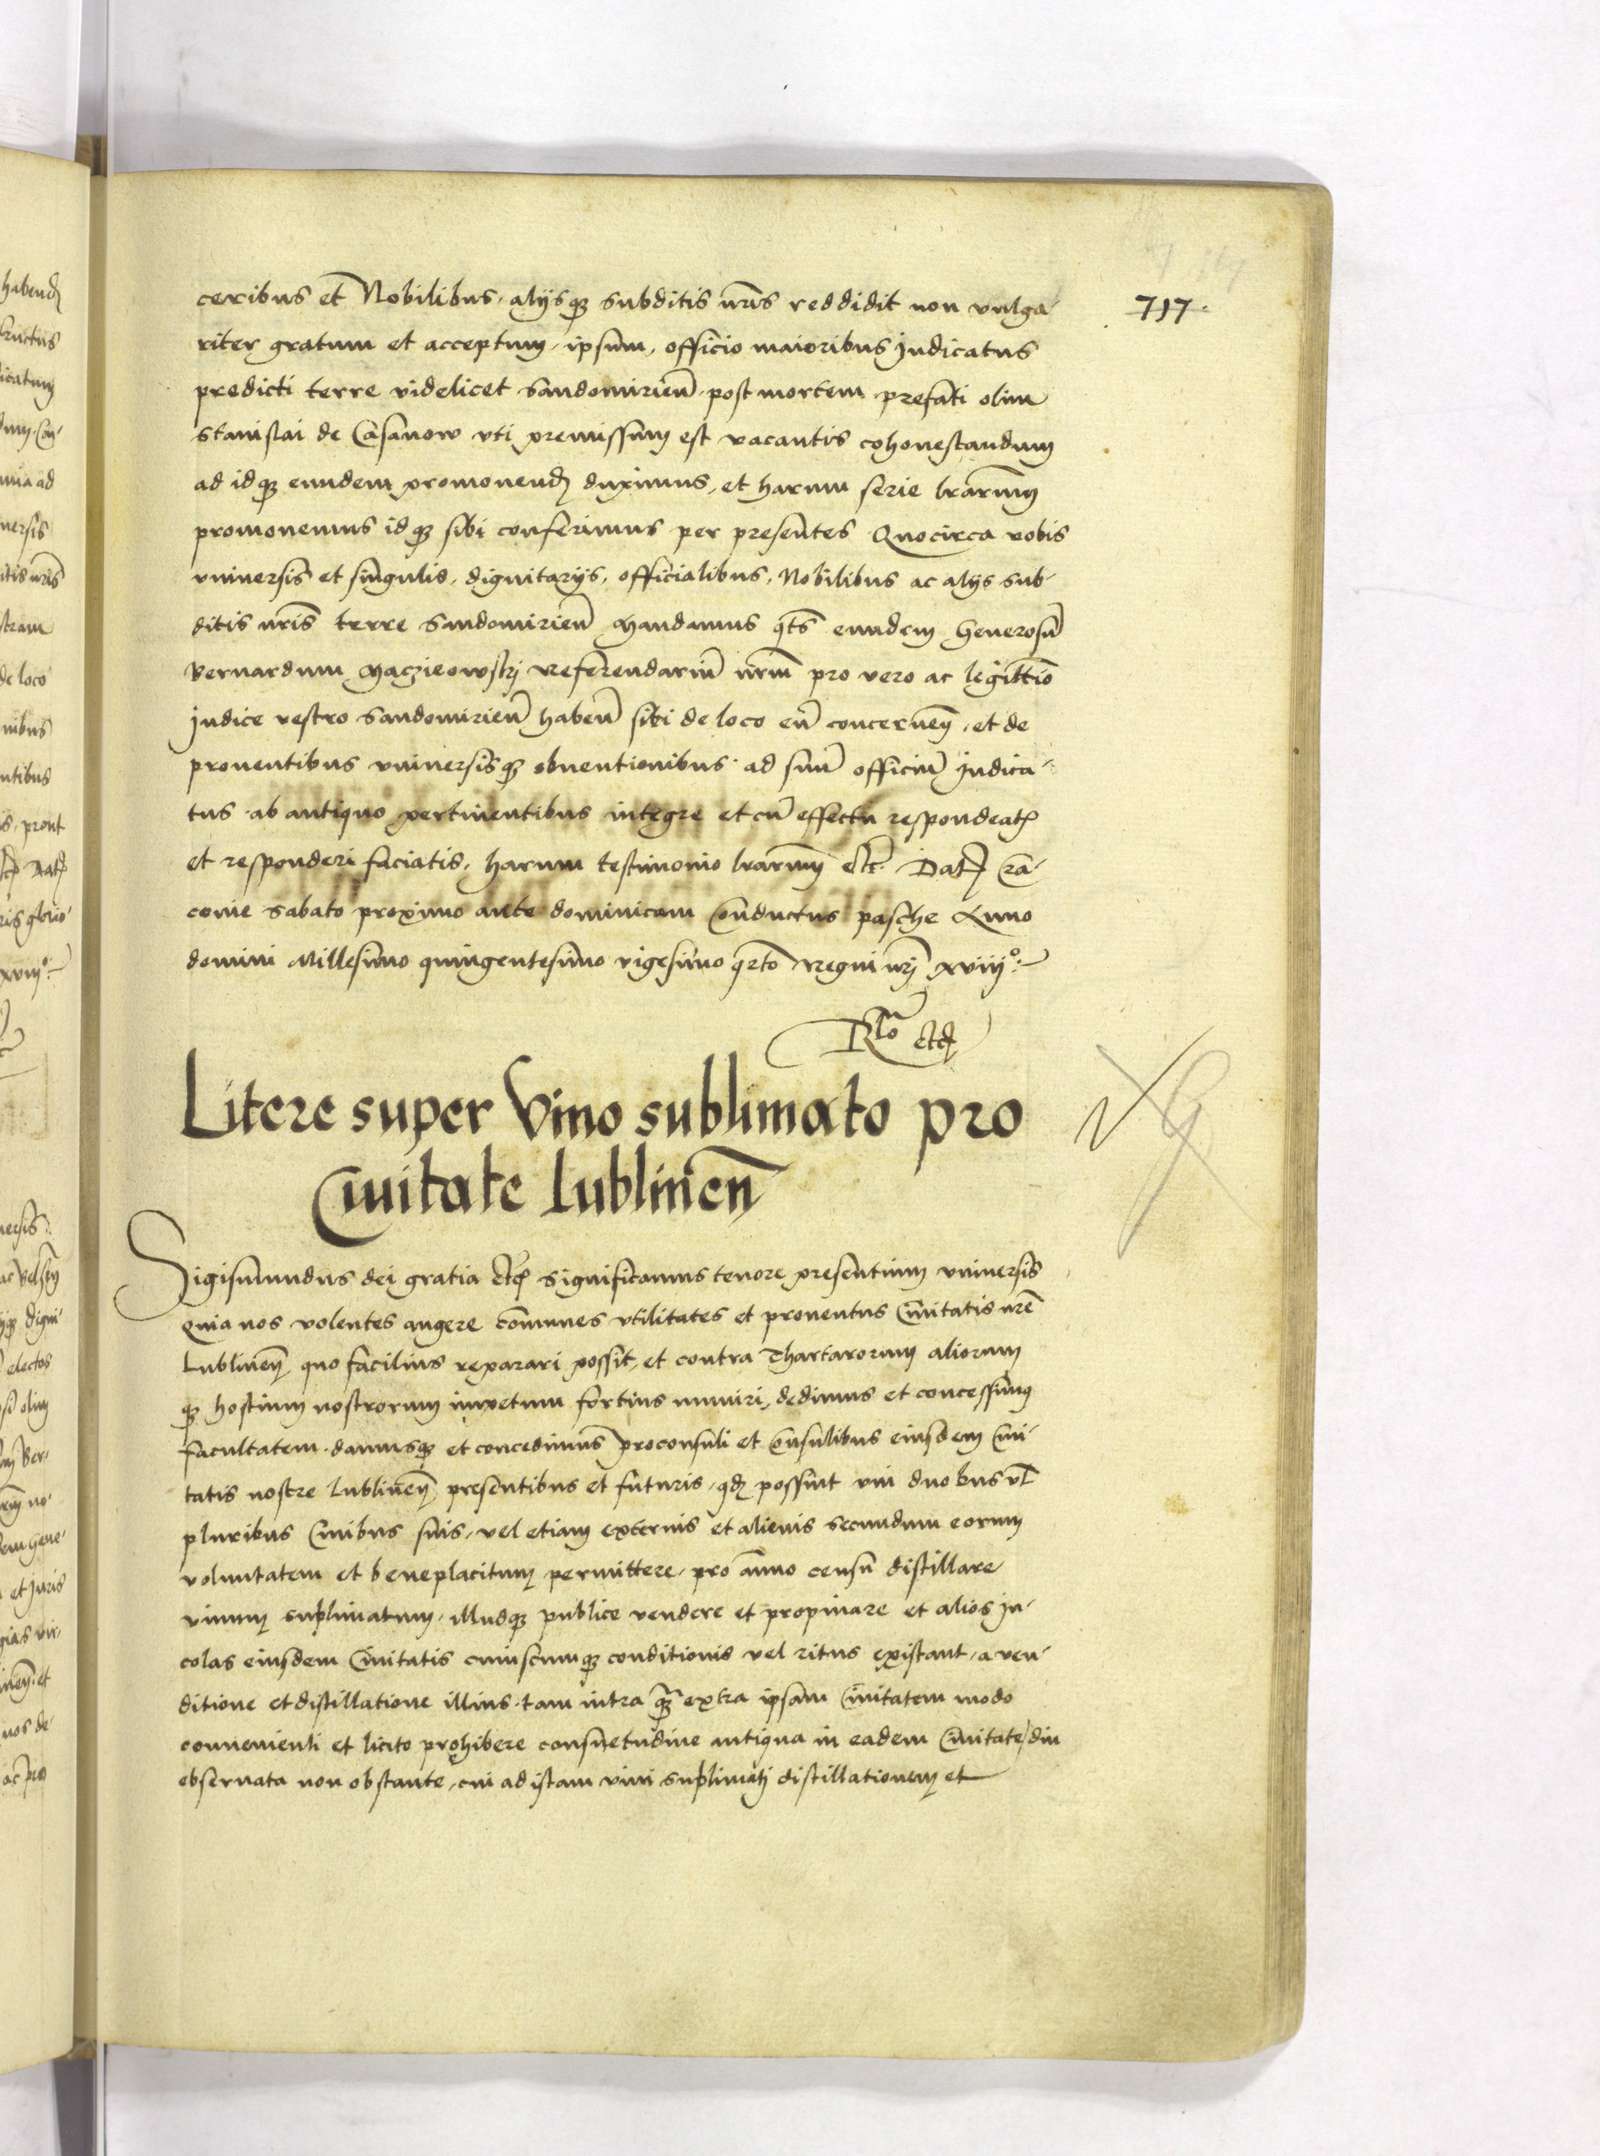 ceribus et Nobilibus, alysqꝫ subditis nr̃is reddidit non vulga-
717.
riter gratum et acceptum, ipsum, officio maioribus Judicatus
predicti terre videlicet Sandomirien̄ post mortem prefati olim
Stanislai de Casanow vti premissum est vacantis cohonestandum
ad idqꝫ eundem promouend̄ duximus, et harum serie lr̄arum
promouemus idqꝫ sibi conferimus per presentes Quocirca vobis
vniuersis et singulis, dignitarys, officialibus, Nobilibus ac alys sub-
ditis nr̃is terre Sandomirien̄ Mandamus qts̄ eundem Generosū
Bernardum Macziewsky Referendariū nr̄m pro vero ac legittīo
Judice vestro Sandomirien̄ haben̄ sibi de loco eū concernen̄, et de
prouentibus vniuersisqꝫ obuentionibus ad suū officiū Judica-
tus ab antiquo pertinentibus integre et cū effectu respondeatꝭ
et responderi faciatis, harum testimonio lr̄arum etc̄. Datꝭ Cra-
couie Sabato proximo ante dominicam Conductus pasche Anno
domini Millesimo quingentesimo vigesimo qrto Regni nrj̄ xviij°.
Rlo etcꝭ
Litere super Vino sublimato pro
Ciuitate Lublinen̄
Sigismundus dei gratia etcꝭ significamus tenore presentium vniuersis
Quia nos volentes augere cōmunes vtilitates et prouentus Ciuitatis nrē
Lublinen̄ quo facilius reparari possit, et contra Thartarorum aliorum
qꝫ hostium nostrorum impetum fortius muniri, dedimus et concessimus
facultatem damusqꝫ et concedimus proconsuli et Consulibus eiusdem Ciui-
tatis nostre Lublinen̄ presentibus et futuris, qd̄ possint vni duobus vl̄
pluribus Ciuibus suis, vel etiam externis et alienis secundum eorum
voluntatem et beneplacitum permittere, pro annuo censu distillare
vinum suplimatum, illudqꝫ publice vendere et propinare et alios in-
colas eiusdem Ciuitatis cuiuscumqꝫ conditionis vel ritus existant, a ven-
ditione et distillatione illius tam intra qꝫ extra ipsam Ciuitatem modo
conuenienti et licito prohibere consuetudine antiqua in eadem Ciuitate diu
obseruata non obstante, cui ad istam vini suplimatj distillationem et